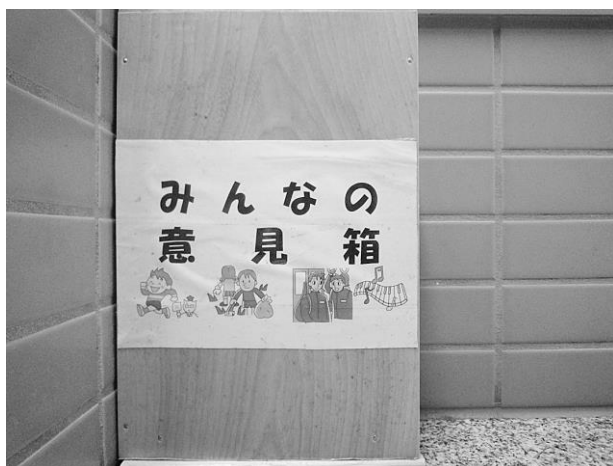 みんなの
意見箱